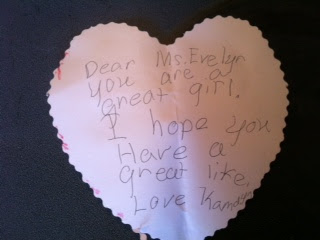 Dear Ms. Evelyn
you are a
great girl.
I hope you
Have a
great like,
Love Kamdyn